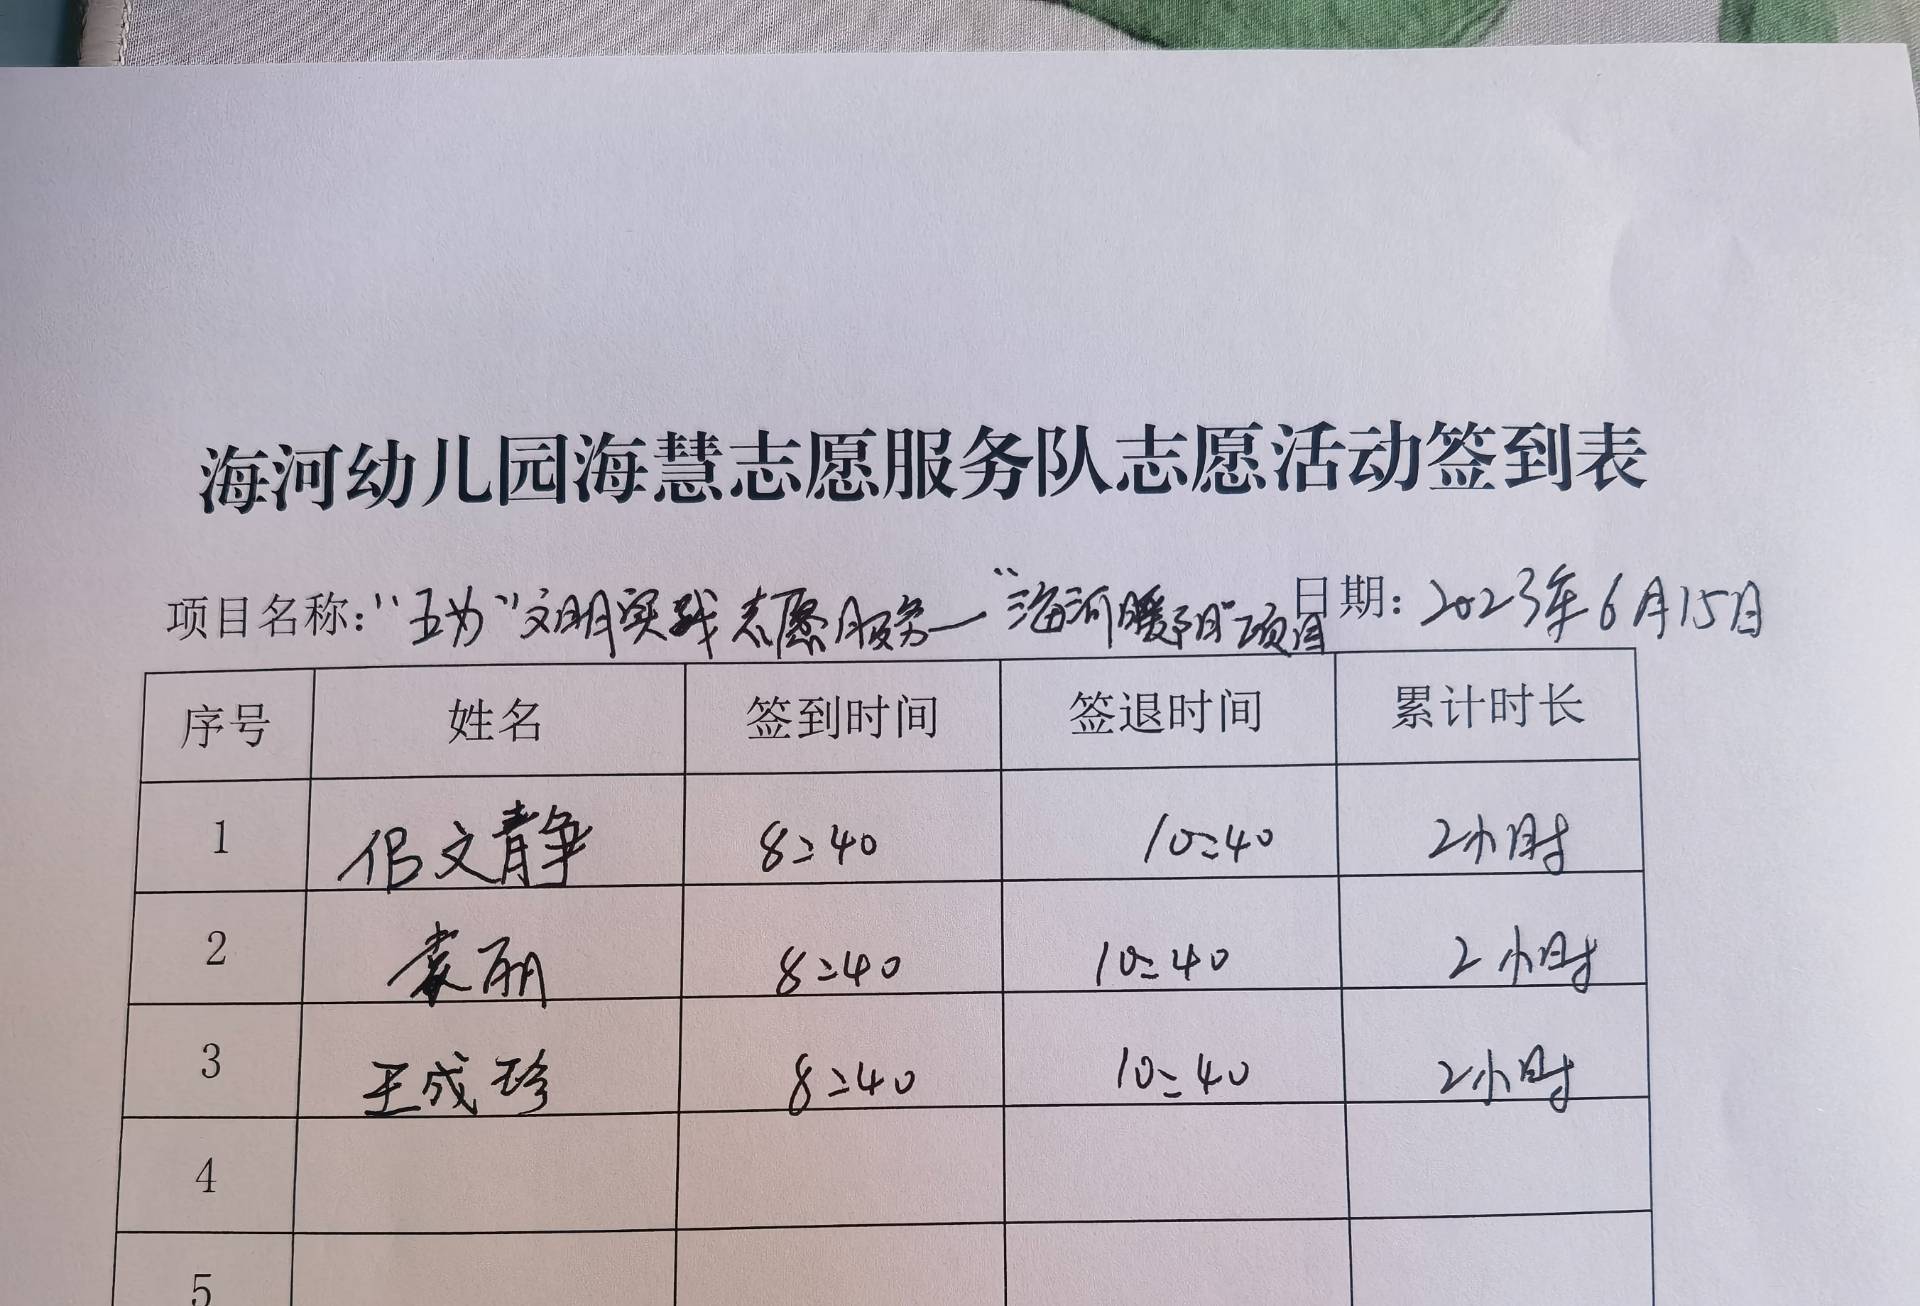 海河幼儿园海慧志愿服务队志愿活动签到表
项目名称:“五为”文明实践志愿服务—“海河暖阳”项目 日期:2023年6月15日
序号 姓名 签到时间 签退时间 累计时长
1 侣文静 8:40 10:40 2小时
2 袁丽 8:40 10:40 2小时
3 王成珍 8:40 10:40 2小时
4
5